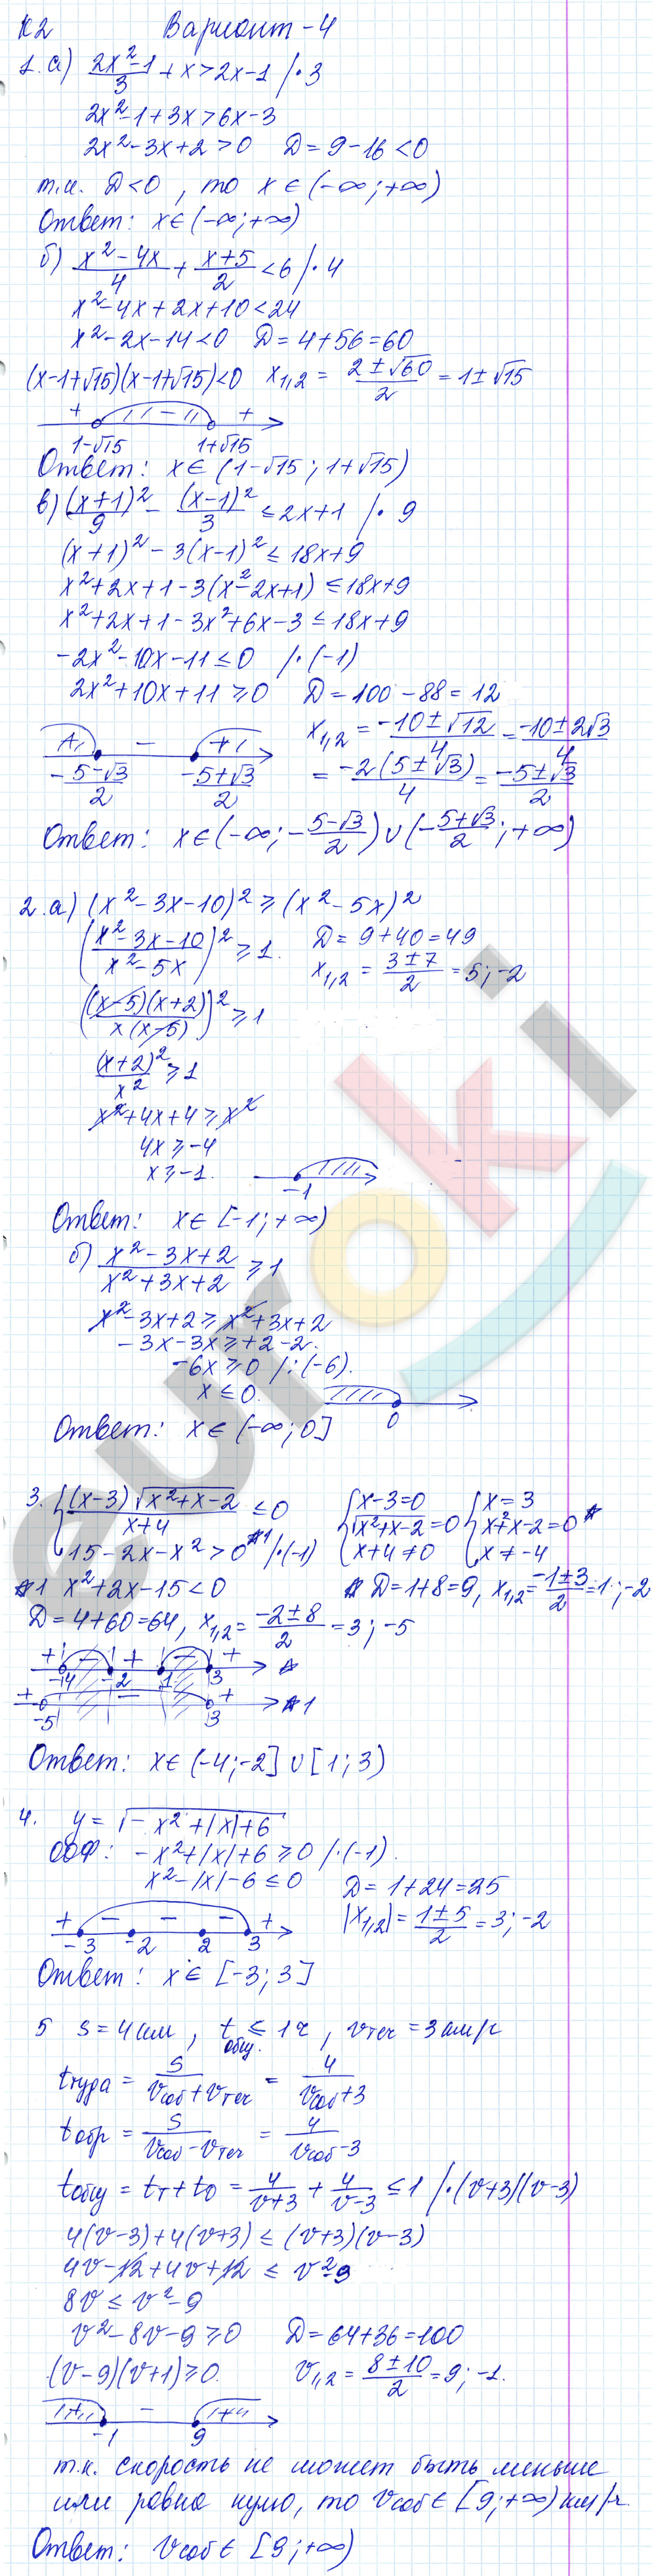 К2 Вариант-4
1. а) (2x²-1)/3 + x > 2x-1 /·3
2x²-1+3x>6x-3
2x²-3x+2>0 D=9-16<0
т.к. D<0, то x∈(-∞;+∞)
Ответ: x∈(-∞;+∞)
б) (x²-4x)/4 + (x+5)/2 <6 /·4
x²-4x+2x+10<24
x²-2x-14<0 D=4+56=60
(x-1+√15)(x-1+√15)<0 x₁,₂ = (2±√60)/2 = 1±√15
+ - +
1-√15 1+√15
Ответ: x∈(1-√15; 1+√15)
в) (x+1)²/9 - (x-1)²/3 ≤ 2x+1 /·9
(x+1)²-3(x-1)² ≤ 18x+9
x²+2x+1-3(x²-2x+1) ≤ 18x+9
x²+2x+1-3x²+6x-3 ≤ 18x+9
-2x²-10x-11 ≤ 0 /·(-1)
2x²+10x+11 ≥ 0 D=100-88=12
x₁,₂ = (-10±√12)/4 = (-10±2√3)/4
+ - +
-(5-√3)/2 -(5+√3)/2 = -2(5±√3)/4 = (-5±√3)/2
Ответ: x∈(-∞; -(5-√3)/2)∪(-(5+√3)/2; +∞)
2. а) (x²-3x-10)² ≥ (x²-5x)²
((x²-3x-10)/(x²-5x))² ≥ 1. D=9+40=49
x₁,₂ = (3±7)/2 = 5; -2
((x-5)(x+2)/(x(x-5)))² ≥ 1
(x+2)²/x² ≥ 1
x²+4x+4 ≥ x²
4x ≥ -4
x ≥ -1.
-1
Ответ: x∈[-1; +∞)
б) (x²-3x+2)/(x²+3x+2) ≥ 1
x²-3x+2 ≥ x²+3x+2
-3x-3x ≥ +2-2.
-6x ≥ 0 /:(-6).
x ≤ 0.
0
Ответ: x∈(-∞; 0]
3. { (x-3)√(x²+x-2)/(x+4) ≤ 0 { x-3=0 { x=3
√(x²+x-2)=0 x²+x-2=0 *
15-2x-x²>0 *1 /·(-1) x+4≠0 x≠-4
*1 x²+2x-15<0 * D=1+8=9, x₁,₂=(-1±3)/2=1; -2
D=4+60=64, x₁,₂=(-2±8)/2=3; -5
+ - + - + *
-4 -2 1 3
+ - + *1
-5 3
Ответ: x∈(-4; -2]∪[1; 3)
4. y=√(-x²+|x|+6)
ООФ: -x²+|x|+6 ≥ 0 /·(-1).
x²-|x|-6 ≤ 0 D=1+24=25
|x₁,₂| = (1±5)/2 = 3; -2
+ - - - +
-3 -2 2 3
Ответ: x∈[-3; 3]
5 S=4км, tобщ. ≤ 1ч, vтеч=3км/ч
tтуда = S/(vсоб+vтеч) = 4/(vсоб+3)
tобр = S/(vсоб-vтеч) = 4/(vсоб-3)
tобщ = tт+tо = 4/(v+3) + 4/(v-3) ≤ 1 /·(v+3)(v-3)
4(v-3)+4(v+3) ≤ (v+3)(v-3)
4v-12+4v+12 ≤ v²-9
8v ≤ v²-9
v²-8v-9 ≥ 0 D=64+36=100
(v-9)(v+1) ≥ 0. v₁,₂=(8±10)/2=9; -1.
+ - +
-1 9
т.к. скорость не может быть меньше
или равна нулю, то vсоб∈[9; +∞) км/ч.
Ответ: vсоб∈[9; +∞)
euroki